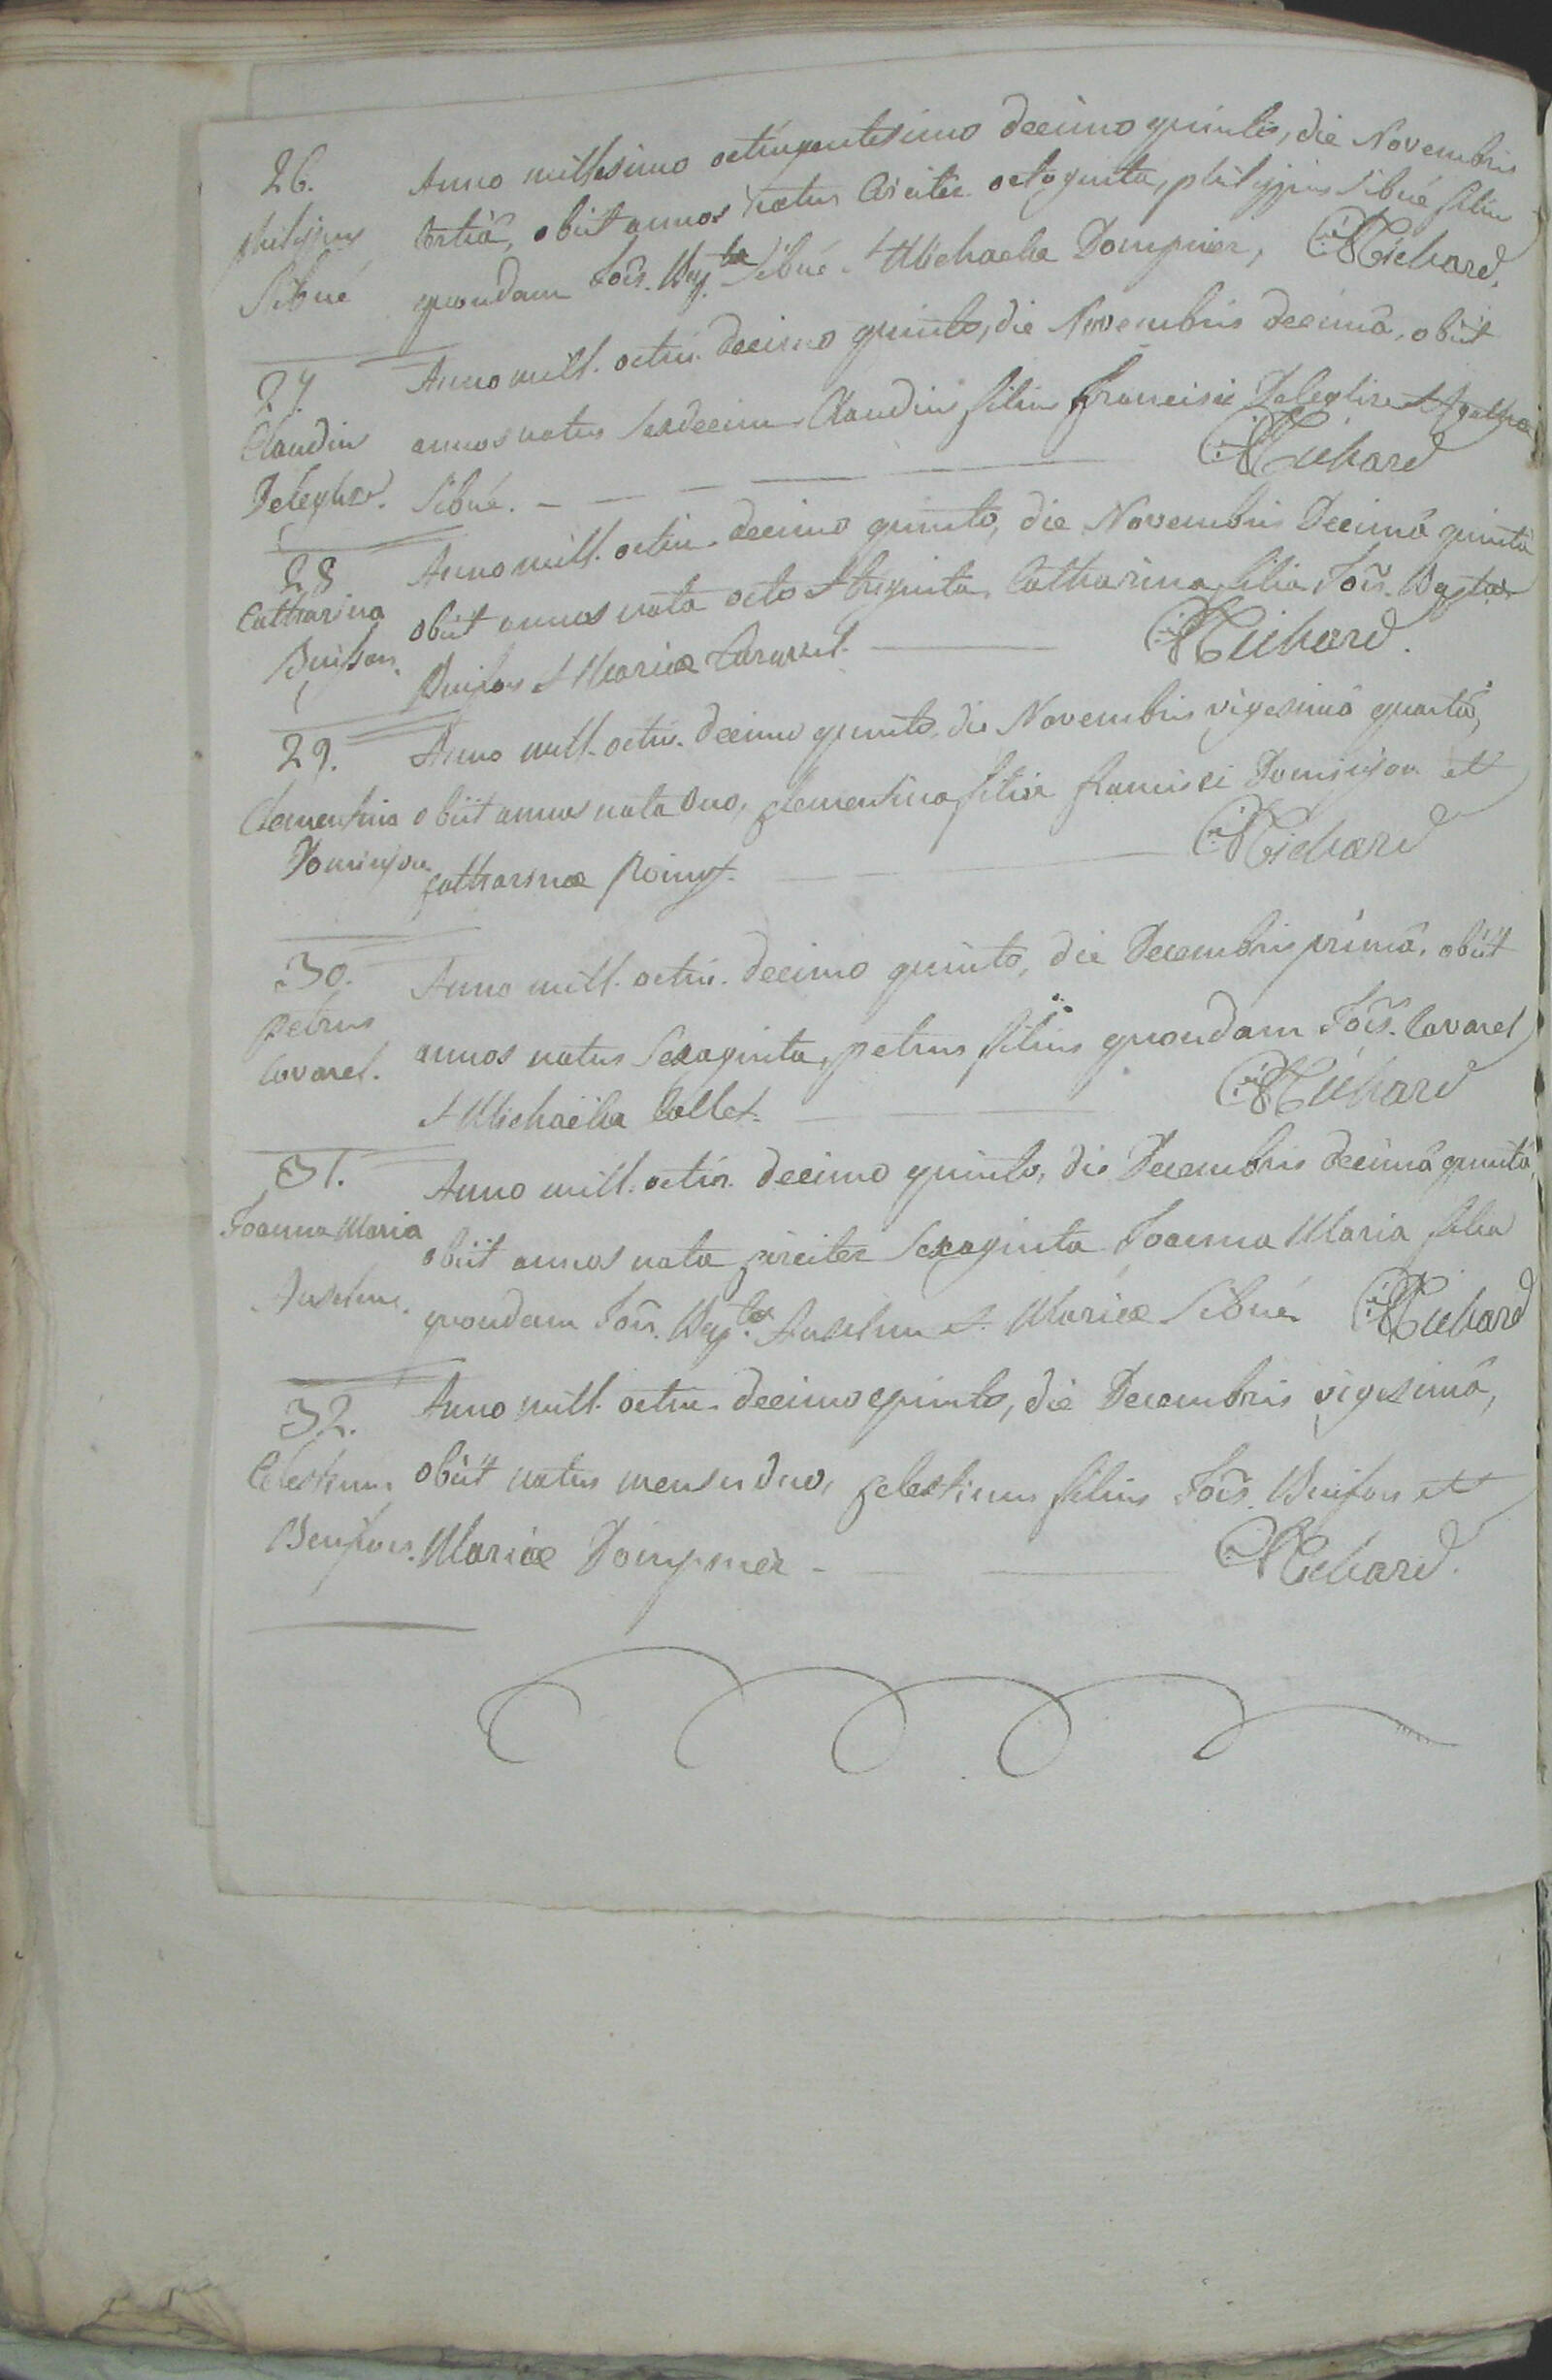 26. Anno millesimo octingentesimo decimo quinto, die Novembris
philippus tertiâ, obiit annos natus Circiter octoginta, philippus Sibué filius
Sibué quondam Jois. Bap.tæ Sibué & Michaelæ Dompnier, Richard.
27. Anno mill. octin. decimo quinto, die Novembris decimâ, obiit
Claudius annos natus Sexdecim Claudius filius francisci Deleglise & Agathæ
Deleglise. Sibué. Richard
28 Anno mill. octin. decimo quinto, die Novembris Decimâ quintâ
Catharina obiit annos nata octo & triginta, Catharina filia Jois. Baptæ
Buisson. Buisson & Mariæ Richard.
29. Anno mill. octin. decimo quinto, die Novembris vigesimâ quartâ,
Clementina obiit annos nata duo, clementina filia francisci Dominjon et
Dominjon catharinæ Richard
30. Anno mill. octin. decimo quinto, die Decembris primâ, obiit
petrus annos natus Sexaginta, petrus filius quondam Jois. Cavarel
Cavarel. & Michaëlæ Collet. Richard
31. Anno mill. octin. decimo quinto, die Decembris decimâ quintâ,
Joanna Maria obiit annos nata circiter Sexaginta Joanna Maria filia
Anselme. quondam Jois. Bap.tæ Anselme & Mariæ Sibué Richard
32. Anno mill. octin. decimo quinto, die Decembris vigesimâ,
Celestinus obiit natus menses duo, celestinus filius Jois. Buisson et
Buisson. Mariæ Dompnier - Richard.